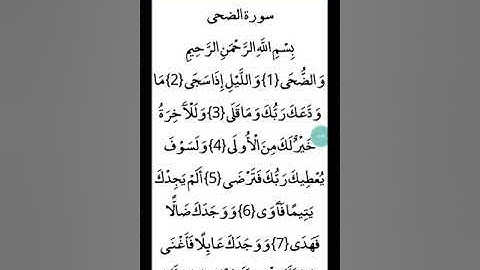 سورة الضحى
بِسْمِ اللَّهِ الرَّحْمَنِ الرَّحِيمِ
وَالضُّحَى {1} وَاللَّيْلِ إِذَا سَجَى {2} مَا
وَدَّعَكَ رَبُّكَ وَمَا قَلَى {3} وَلَلْآخِرَةُ
خَيْرٌ لَّكَ مِنَ الْأُولَى {4} وَلَسَوْفَ
يُعْطِيكَ رَبُّكَ فَتَرْضَى {5} أَلَمْ يَجِدْكَ
يَتِيمًا فَآوَى {6} وَوَجَدَكَ ضَالًّا
فَهَدَى {7} وَوَجَدَكَ عَائِلًا فَأَغْنَى